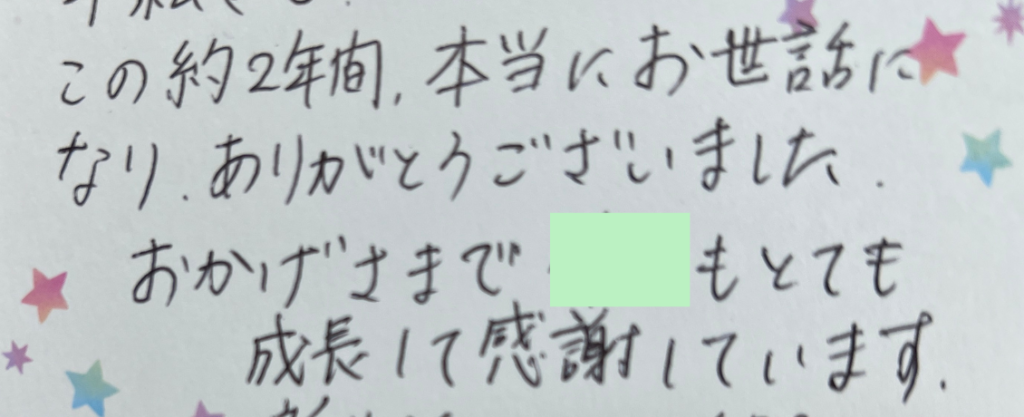 この約2年間,本当にお世話に
なり.ありがとうございました.
おかげさまで もとても
成長して感謝しています.